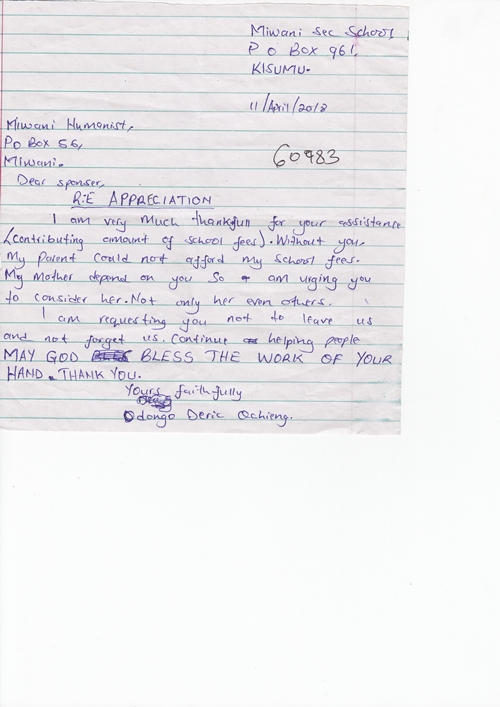 Miwani Sec School
P O Box 961,
KISUMU.
11/April/2018
Miwani Humanist,
PO Box 56,
Miwani.
60983
Dear sponser,
R:E APPRECIATION
I am very much thankfull for your assistance
(contributing amount of school fees). Without you,
My parent could not afford my school fees.
My Mother depend on you So I am urging you
to consider her. Not only her even others.
I am requesting you not to leave us
and not forget us. Continue helping people
MAY GOD BLESS THE WORK OF YOUR
HAND. THANK YOU.
Yours faithfully
Odongo Deric Ochieng.